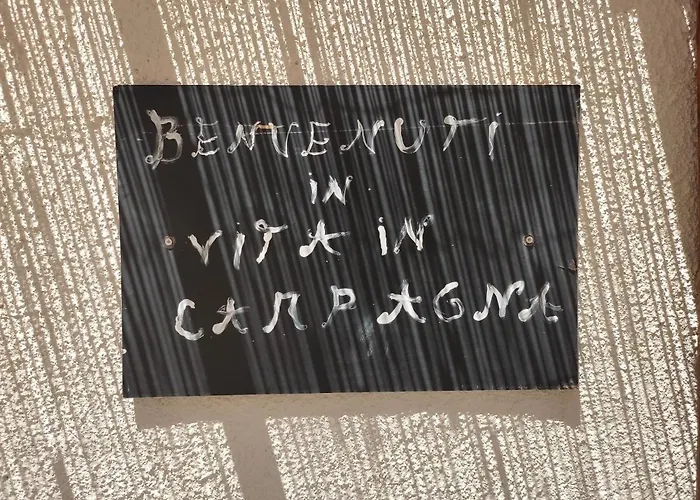 BENVENUTi
iN
ViTA iN
CAMPAGNA